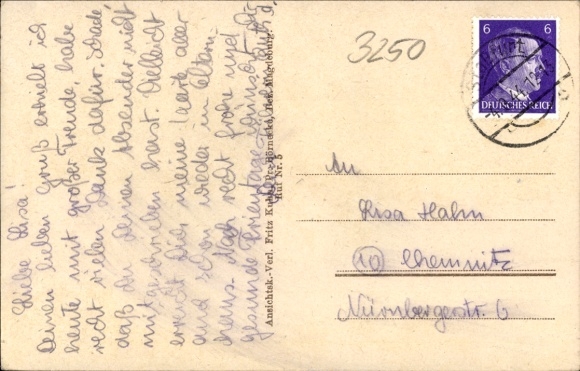 Liebe Lisa!
Deinen lieben Gruß erhielt ich
heute mit großer Freude, habe
recht vielen Dank dafür. Schade
daß du deinen Absender nicht
mitgeschrieben hast. Vielleicht
erreicht Dich meine Karte aber
und schon wieder in Eltern-
haus. Noch recht frohe und
gesunde Ferientage wünscht dir
Ansichtsk.-Verl. Fritz Kuhn, Bez. Magdeburg.
Ruf Nr. 5
3250
6 6
DEUTSCHES REICH
An
Lisa Hahn
(10) Chemnitz
Nürnbergerstr. 6